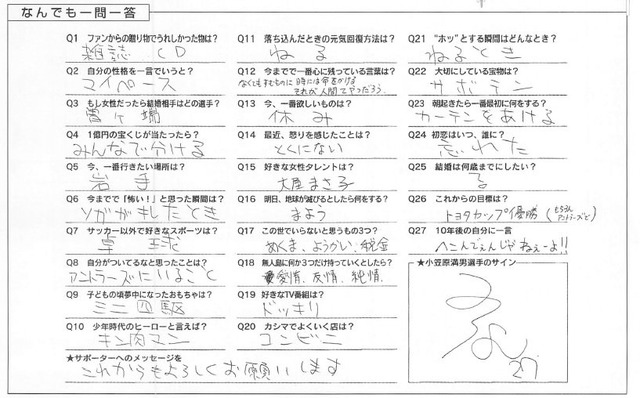 なんでも一問一答
Q1 ファンからの贈り物でうれしかった物は?
雑誌 CD
Q2 自分の性格を一言でいうと?
マイペース
Q3 もし女性だったら結婚相手はどの選手?
Q4 1億円の宝くじが当たったら?
みんなで分ける
Q5 今、一番行きたい場所は?
岩手
Q6 今までで「怖い!」と思った瞬間は?
ソガがキレたとき
Q7 サッカー以外で好きなスポーツは?
卓球
Q8 自分がついてるなと思ったことは?
アントラーズにいること
Q9 子どもの頃夢中になったおもちゃは?
ミニ四駆
Q10 少年時代のヒーローと言えば?
キン肉マン
Q11 落ち込んだときの元気回復方法は?
ねる
Q12 今までで一番心に残っている言葉は?
なくてもすむものに時には命をかける
それが人間てやつだろう
Q13 今、一番欲しいものは?
休み
Q14 最近、怒りを感じたことは?
とくにない
Q15 好きな女性タレントは?
大屋まさ子
Q16 明日、地球が滅びるとしたら何をする?
まよう
Q17 この世でいらないと思うもの3つ?
ぬくま、ようかい、税金
Q18 無人島に何か3つだけ持っていくとしたら?
愛情、友情、純情
Q19 好きなTV番組は?
ドッキリ
Q20 カシマでよくいく店は?
コンビニ
Q21 “ホッ”とする瞬間はどんなとき?
ねるとき
Q22 大切にしている宝物は?
サボテン
Q23 朝起きたら一番最初に何をする?
カーテンをあける
Q24 初恋はいつ、誰に?
忘れた
Q25 結婚は何歳までにしたい?
る
Q26 これからの目標は?
トヨタカップ優勝(もちろんアントラーズで)
Q27 10年後の自分に一言
へこんでんじゃねぇーよ!!
★小笠原満男選手のサイン
27
★サポーターへのメッセージを
これからもよろしくお願いします